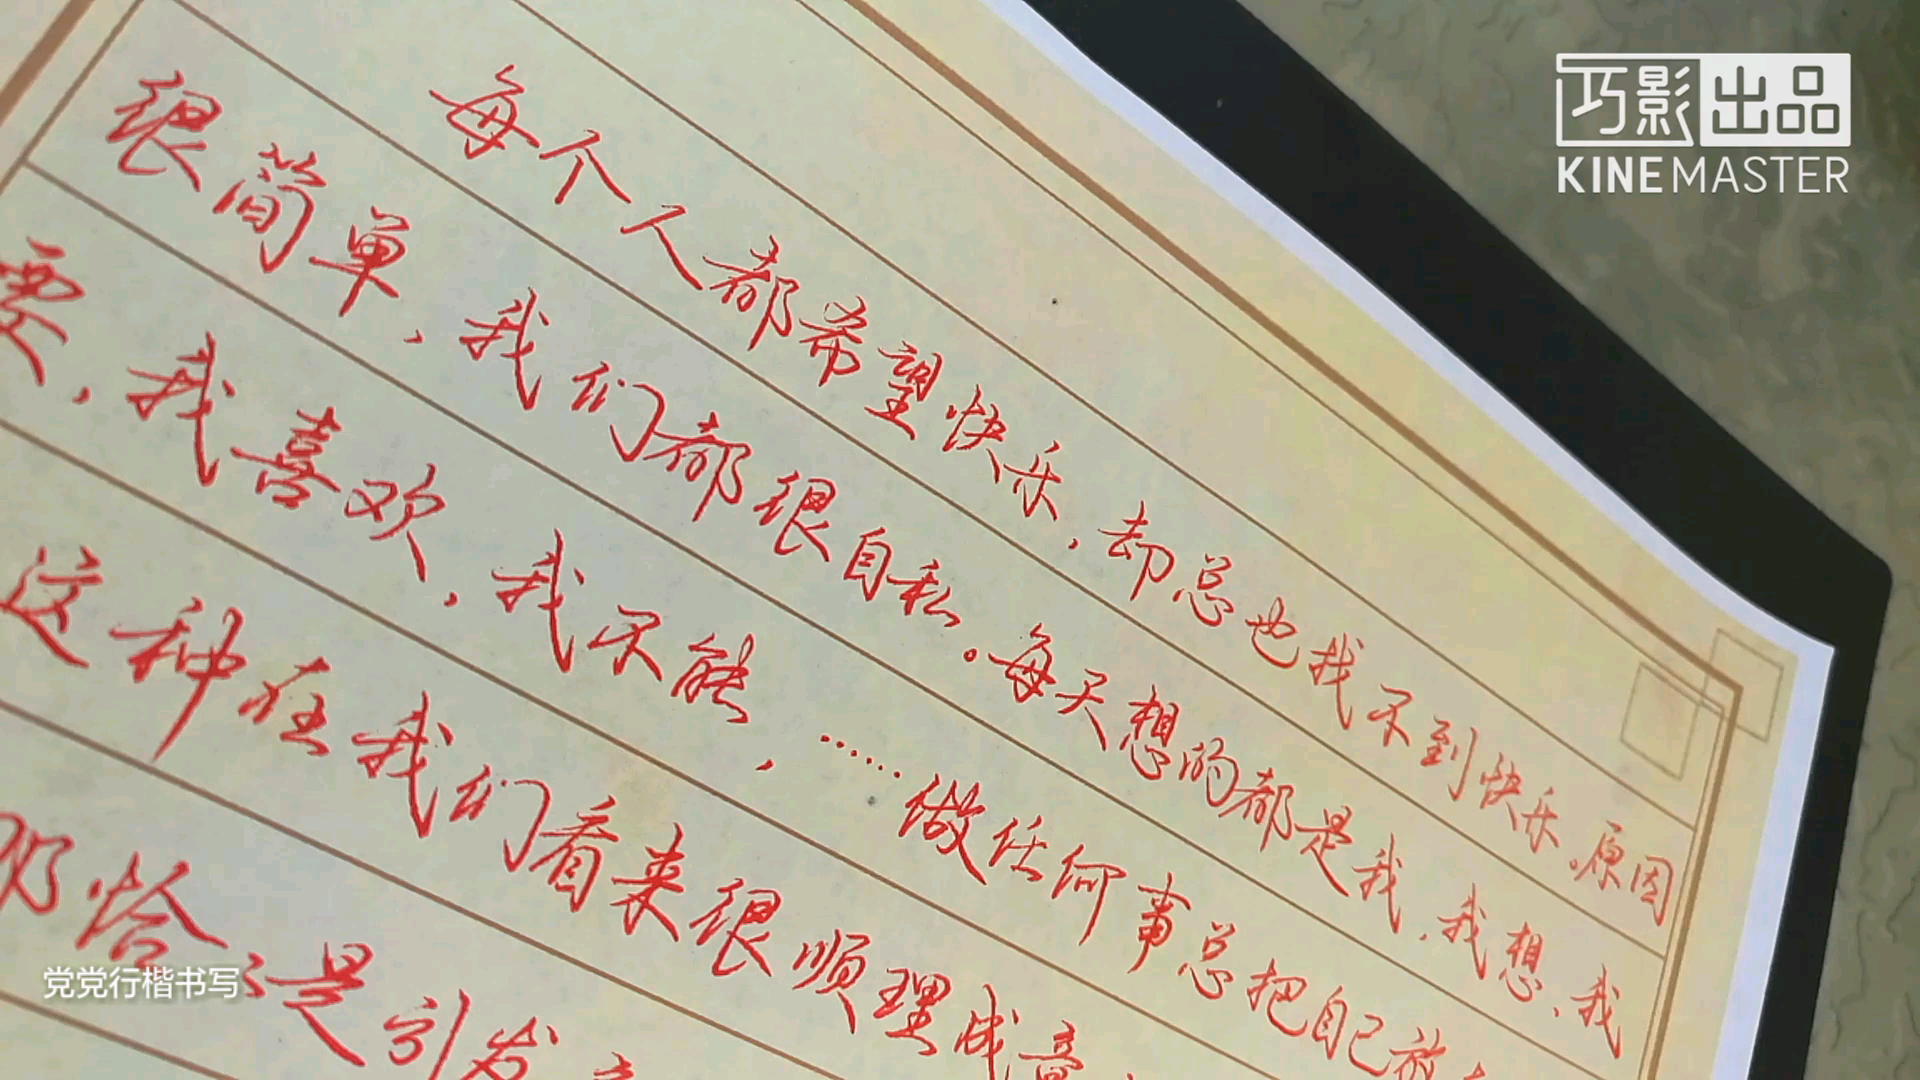 每个人都希望快乐,却总也找不到快乐。原因
很简单,我们都很自私。每天想的都是我,我想、我
要,我喜欢,我不能,……做任何事总把自己放
这种在我们看来很顺理成章
那恰恰是引发
巧影出品
KINEMASTER
党党行楷书写